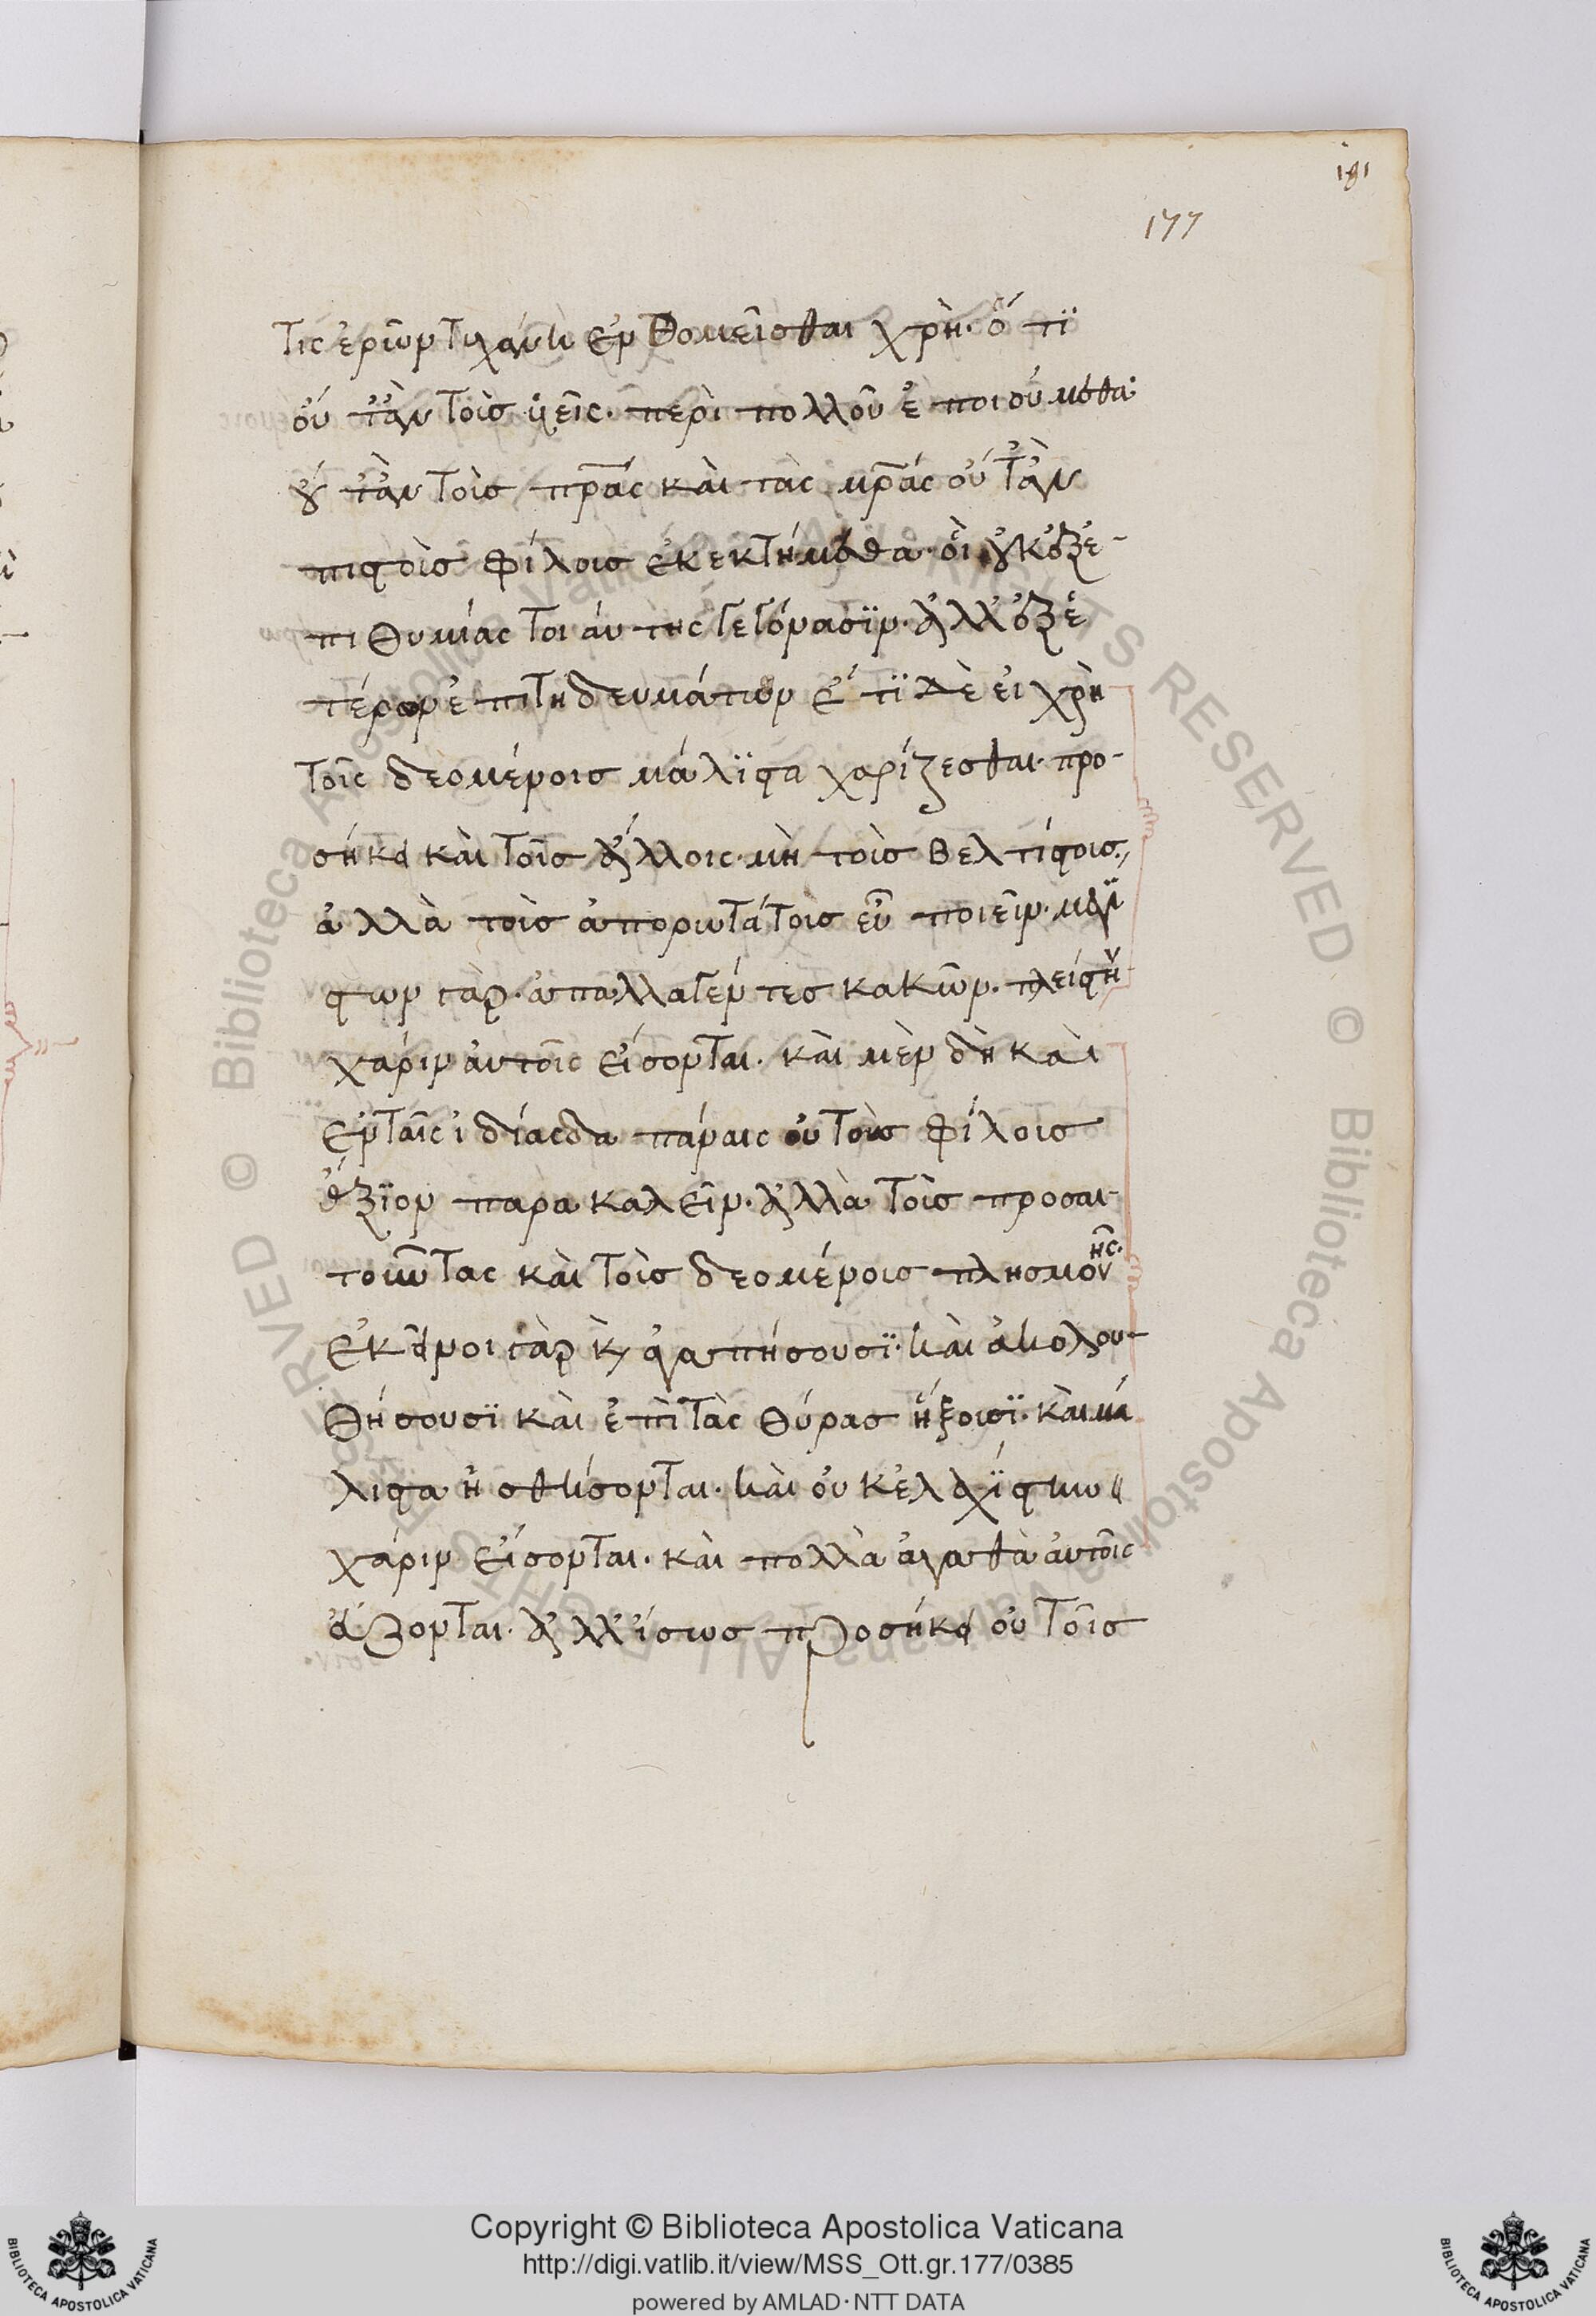 181
177
τις ἐρῶν τυγχάνη ἐνθυμεῖσθαι χρὴ· ὅτι
οὔτ' ἂν τοὺς ὑεῖς· περὶ πολλοῦ ἐποιούμεθα
οὔτ' ἂν τοὺς πρ̅ας καὶ τὰς μρ̅ας οὔτ' ἂν
πιστοὺς φίλους ἐκεκτήμεθα· οἳ οὐκ ἐξ ἐ-
πιθυμίας τοιαύτης γεγόνασϊν· ἀλλ' ἐξ ἑ
τέρων ἐπιτηδευμάτων ἔτϊ δὲ εἰ χρὴ
τοῖς δεομένοις μάλϊστα χαρίζεσθαι· προ-
σήκει καὶ τοῖς ἄλλοις· μὴ τοὺς βελτίστους,
ἀλλὰ τοὺς ἀπορωτάτους εὖ ποιεῖν· μεγί
στων γὰρ· ἀπαλλαγέντες κακῶν· πλείστην
χάριν αὐτοῖς εἴσονται· καὶ μὲν δὴ καὶ
ἐν ταῖς ἰδίαις δαπάναις οὐ τοὺς φίλους
ἄξϊον παρακαλεῖν· ἀλλὰ τοὺς προσαι-
τοῦντας καὶ τοὺς δεομένους πλησμονῆς·
ἐκεῖνοι γὰρ κ ἀγαπήσουσϊ· καὶ ἀκολου-
θήσουσϊ καὶ ἐπὶ τὰς θύρας ἥξουσϊ· καὶ μά
λιστα ἡσθήσονται· καὶ οὐκ ἐλαχϊστην
χάριν εἴσονται· καὶ πολλὰ ἀγαθὰ αὐτοῖς
εὔξονται· ἀλλ' ἴσως προσήκει οὐ τοῖς
Copyright © Biblioteca Apostolica Vaticana
http://digi.vatlib.it/view/MSS_Ott.gr.177/0385
powered by AMLAD·NTT DATA
BIBLIOTECA APOSTOLICA VATICANA
BIBLIOTECA APOSTOLICA VATICANA
© Biblioteca Apostolica Vaticana ALL RIGHTS RESERVED © Biblioteca Apostolica Vaticana ALL RIGHTS RESERVED